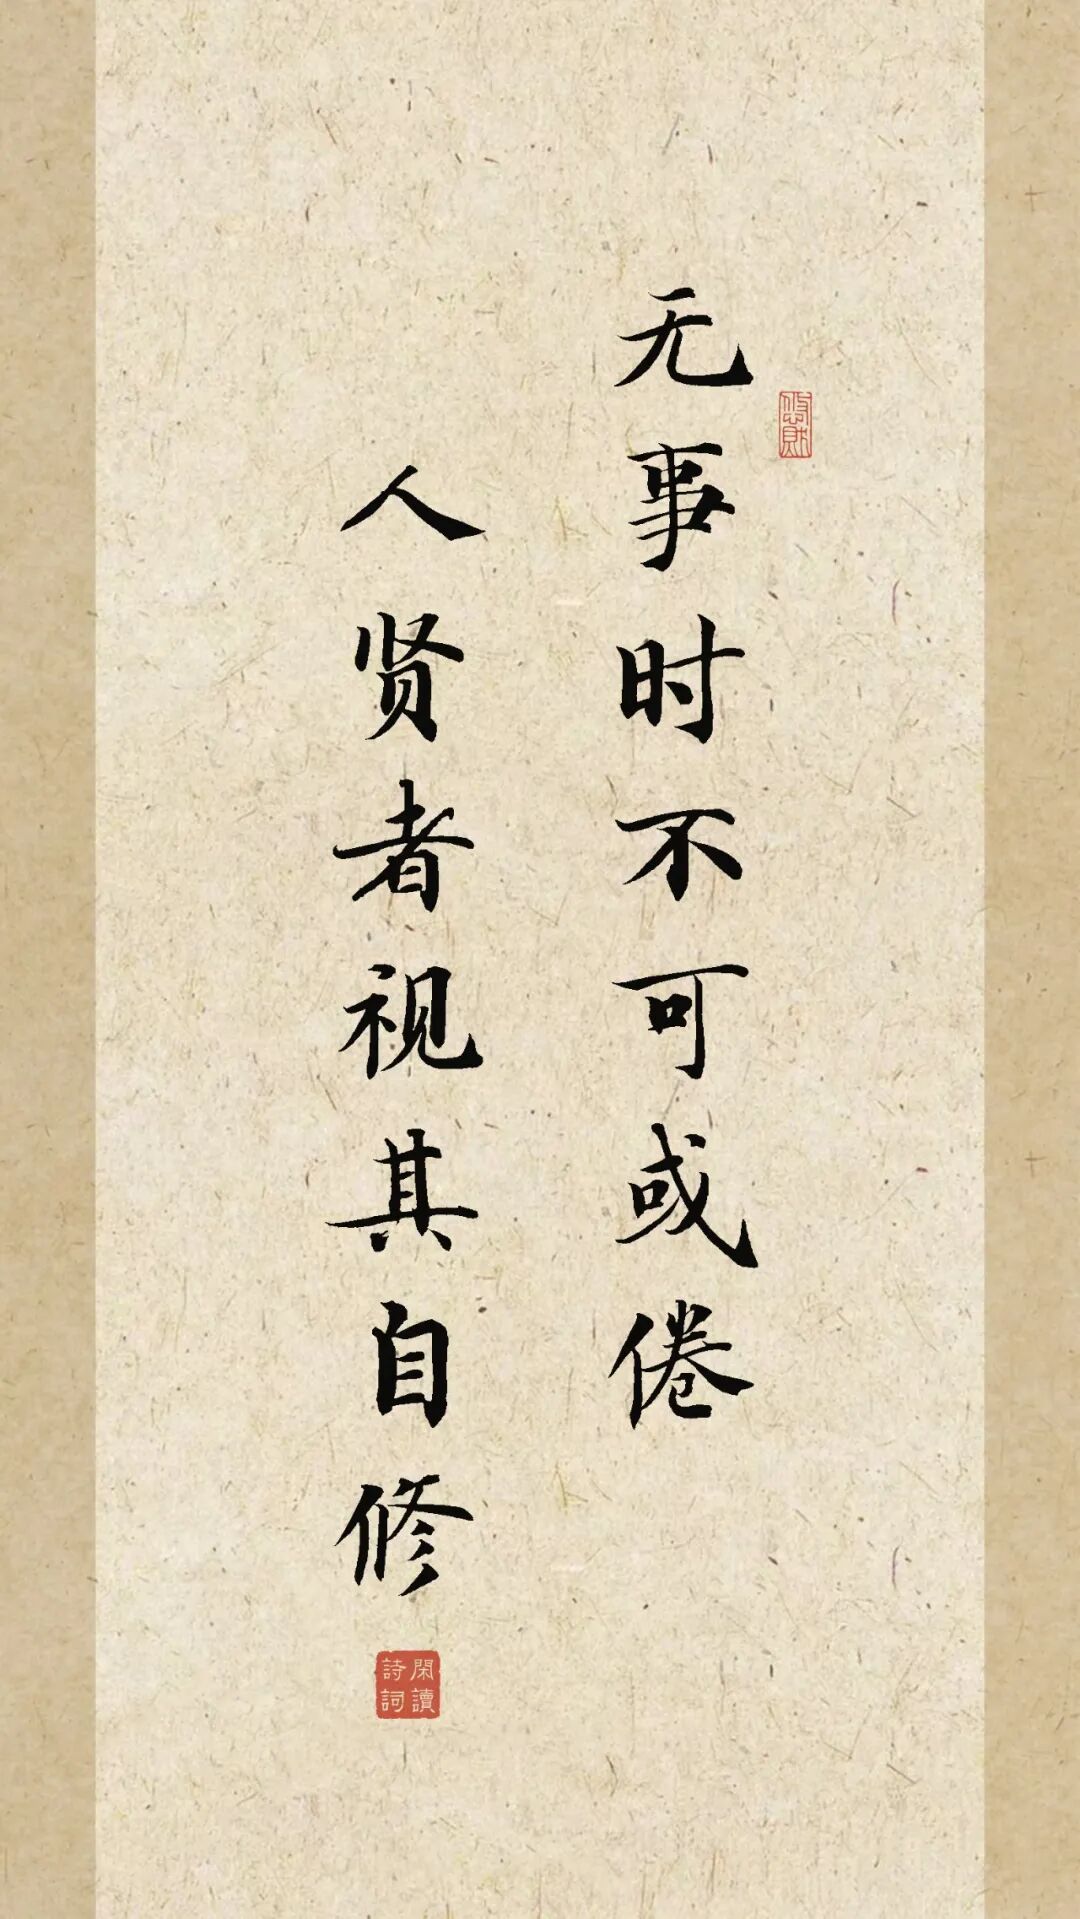 无事时不可或倦
人贤者视其自修
悠然
閑讀
詩詞